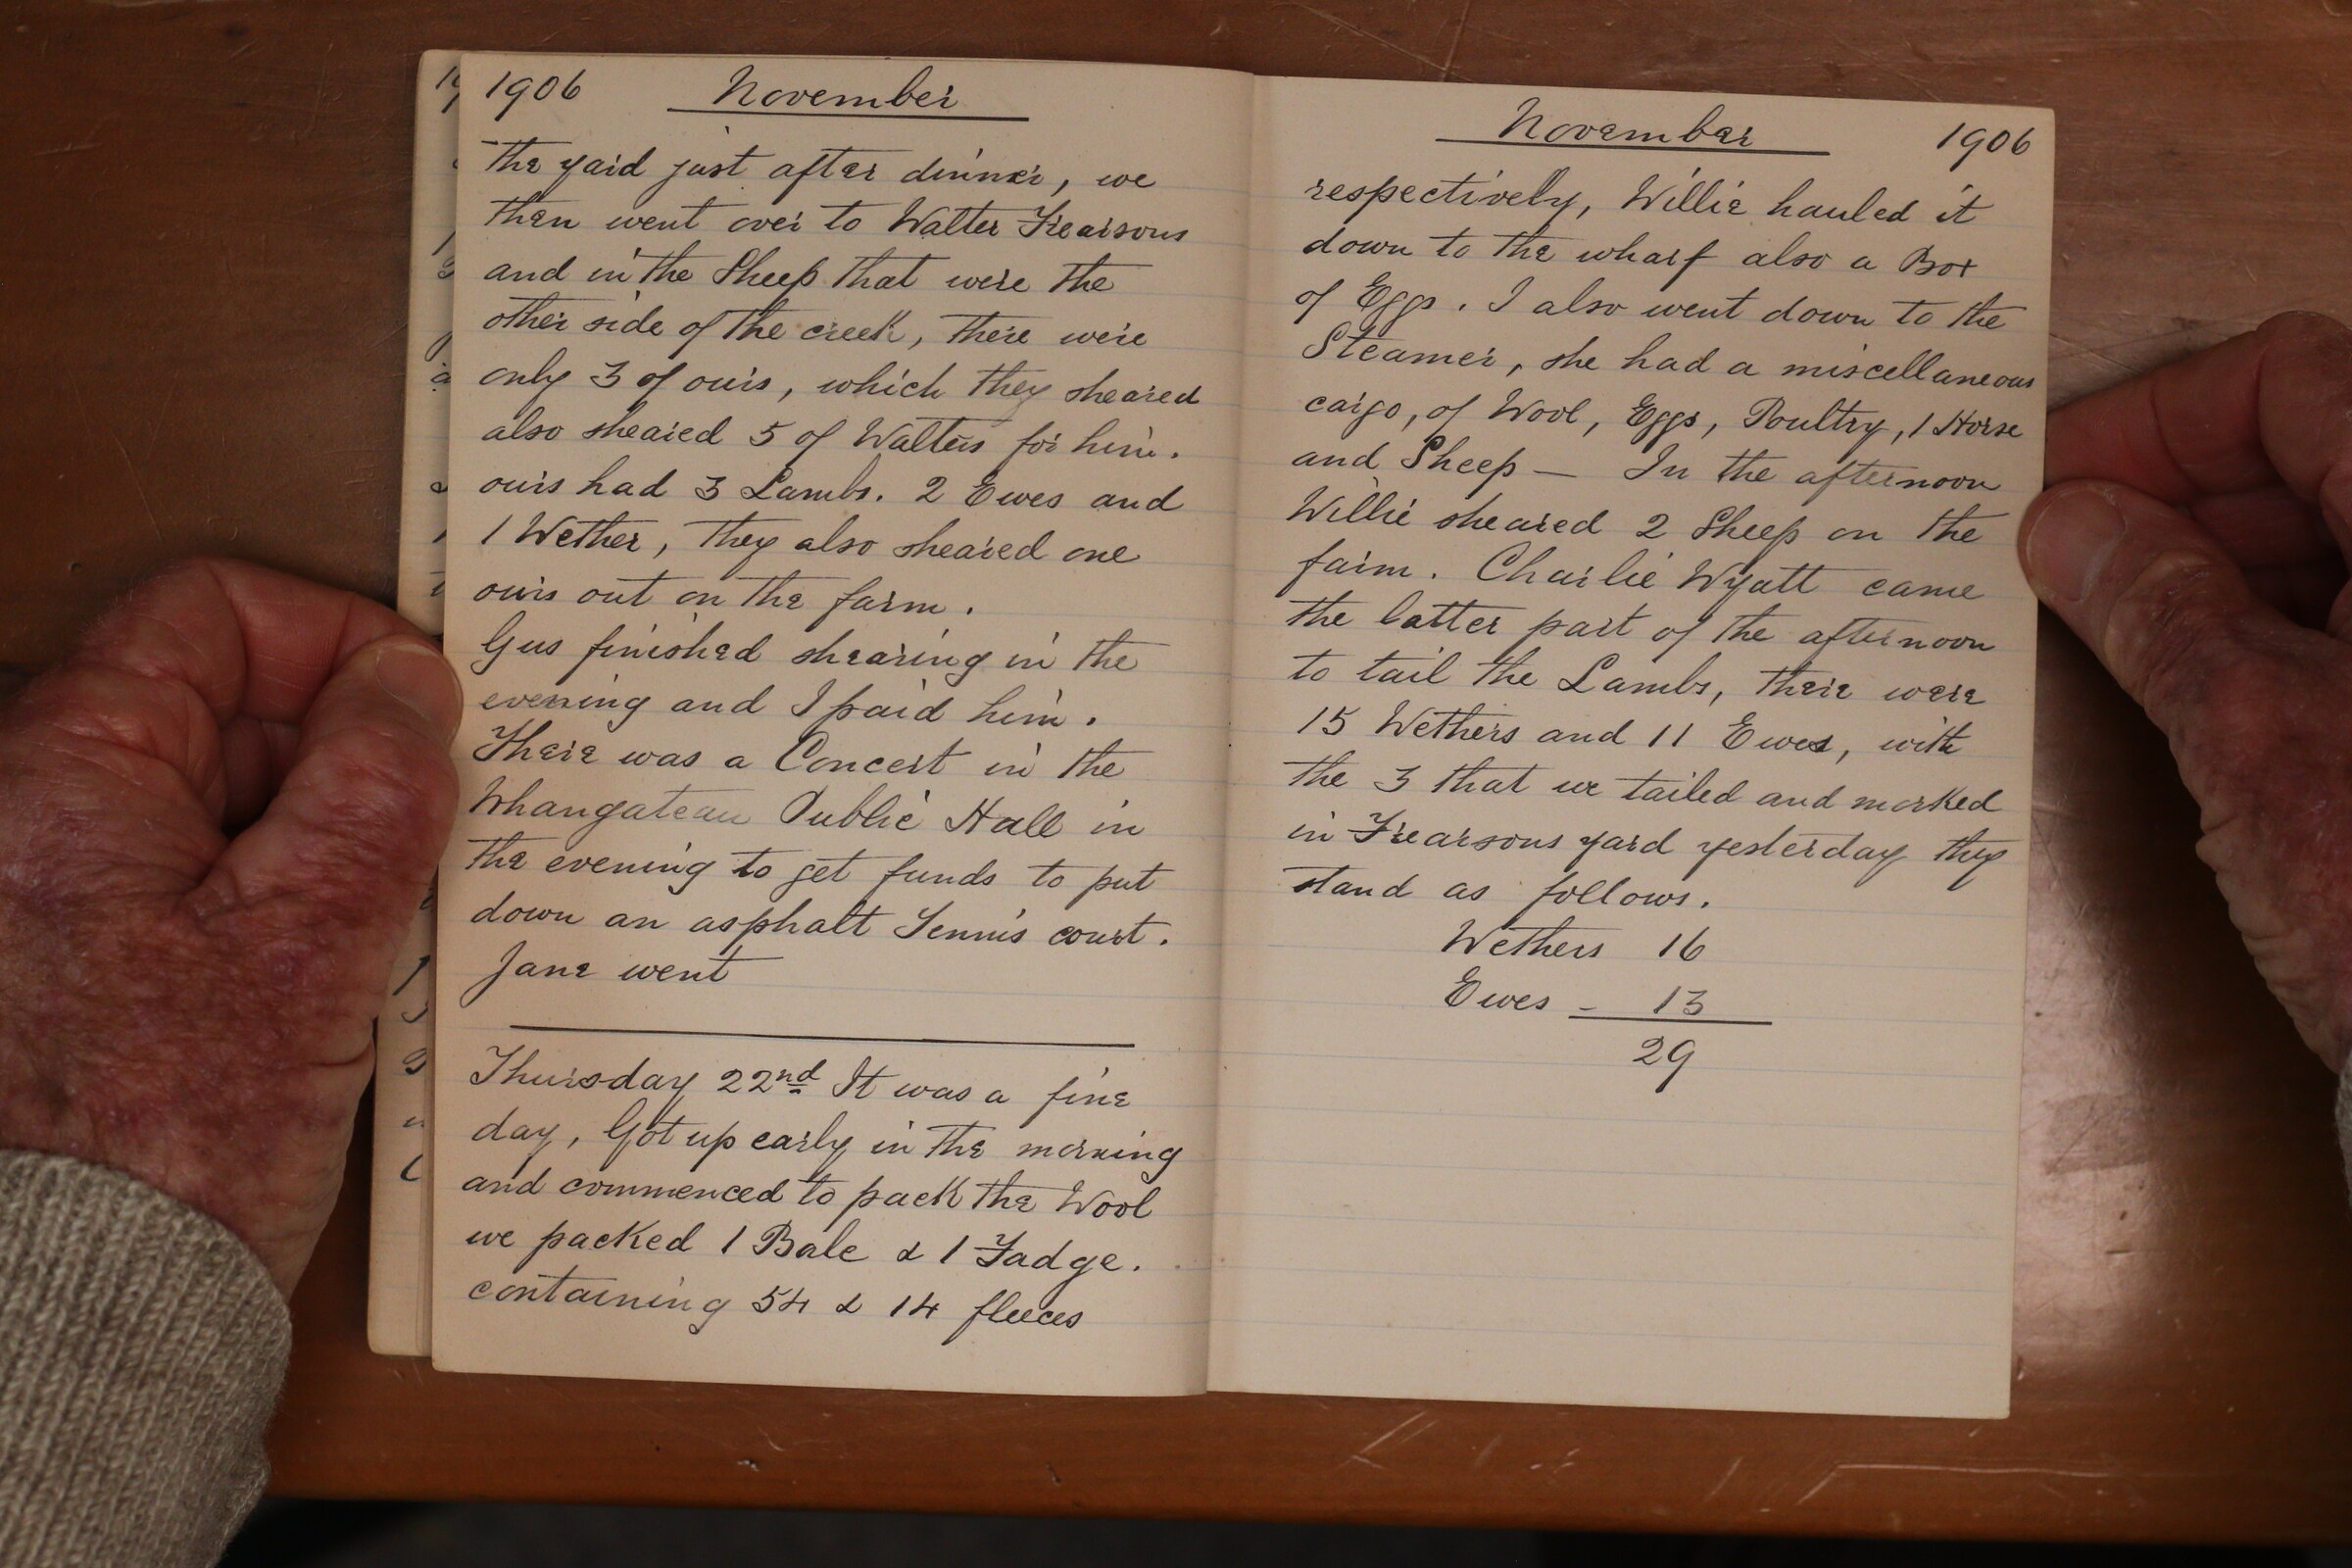 1906 November
the yard just after dinner, we
then went over to Walter Frearsons
and in the Sheep that were the
other side of the creek, there were
only 3 of ours, which they sheared
also sheared 5 of Walters for him.
ours had 3 Lambs. 2 Ewes and
1 Wether, they also sheared one
ours out on the farm.
Gus finished shearing in the
evening and I paid him.
There was a Concert in the
Whangateau Public Hall in
the evening to get funds to put
down an asphalt Tennis court.
Jane went
Thursday 22nd It was a fine
day, Got up early in the morning
and commenced to pack the Wool
we packed 1 Bale & 1 Fadge.
containing 54 & 14 fleeces
November 1906
respectively, Willie hauled it
down to the wharf also a Box
of Eggs. I also went down to the
Steamer, she had a miscellaneous
cargo, of Wool, Eggs, Poultry, 1 Horse
and Sheep — In the afternoon
Willie sheared 2 Sheep on the
farm. Charlie Wyatt came
the latter part of the afternoon
to tail the Lambs, there were
15 Wethers and 11 Ewes, with
the 3 that we tailed and marked
in Frearsons yard yesterday they
stand as follows.
Wethers 16
Ewes - 13
29